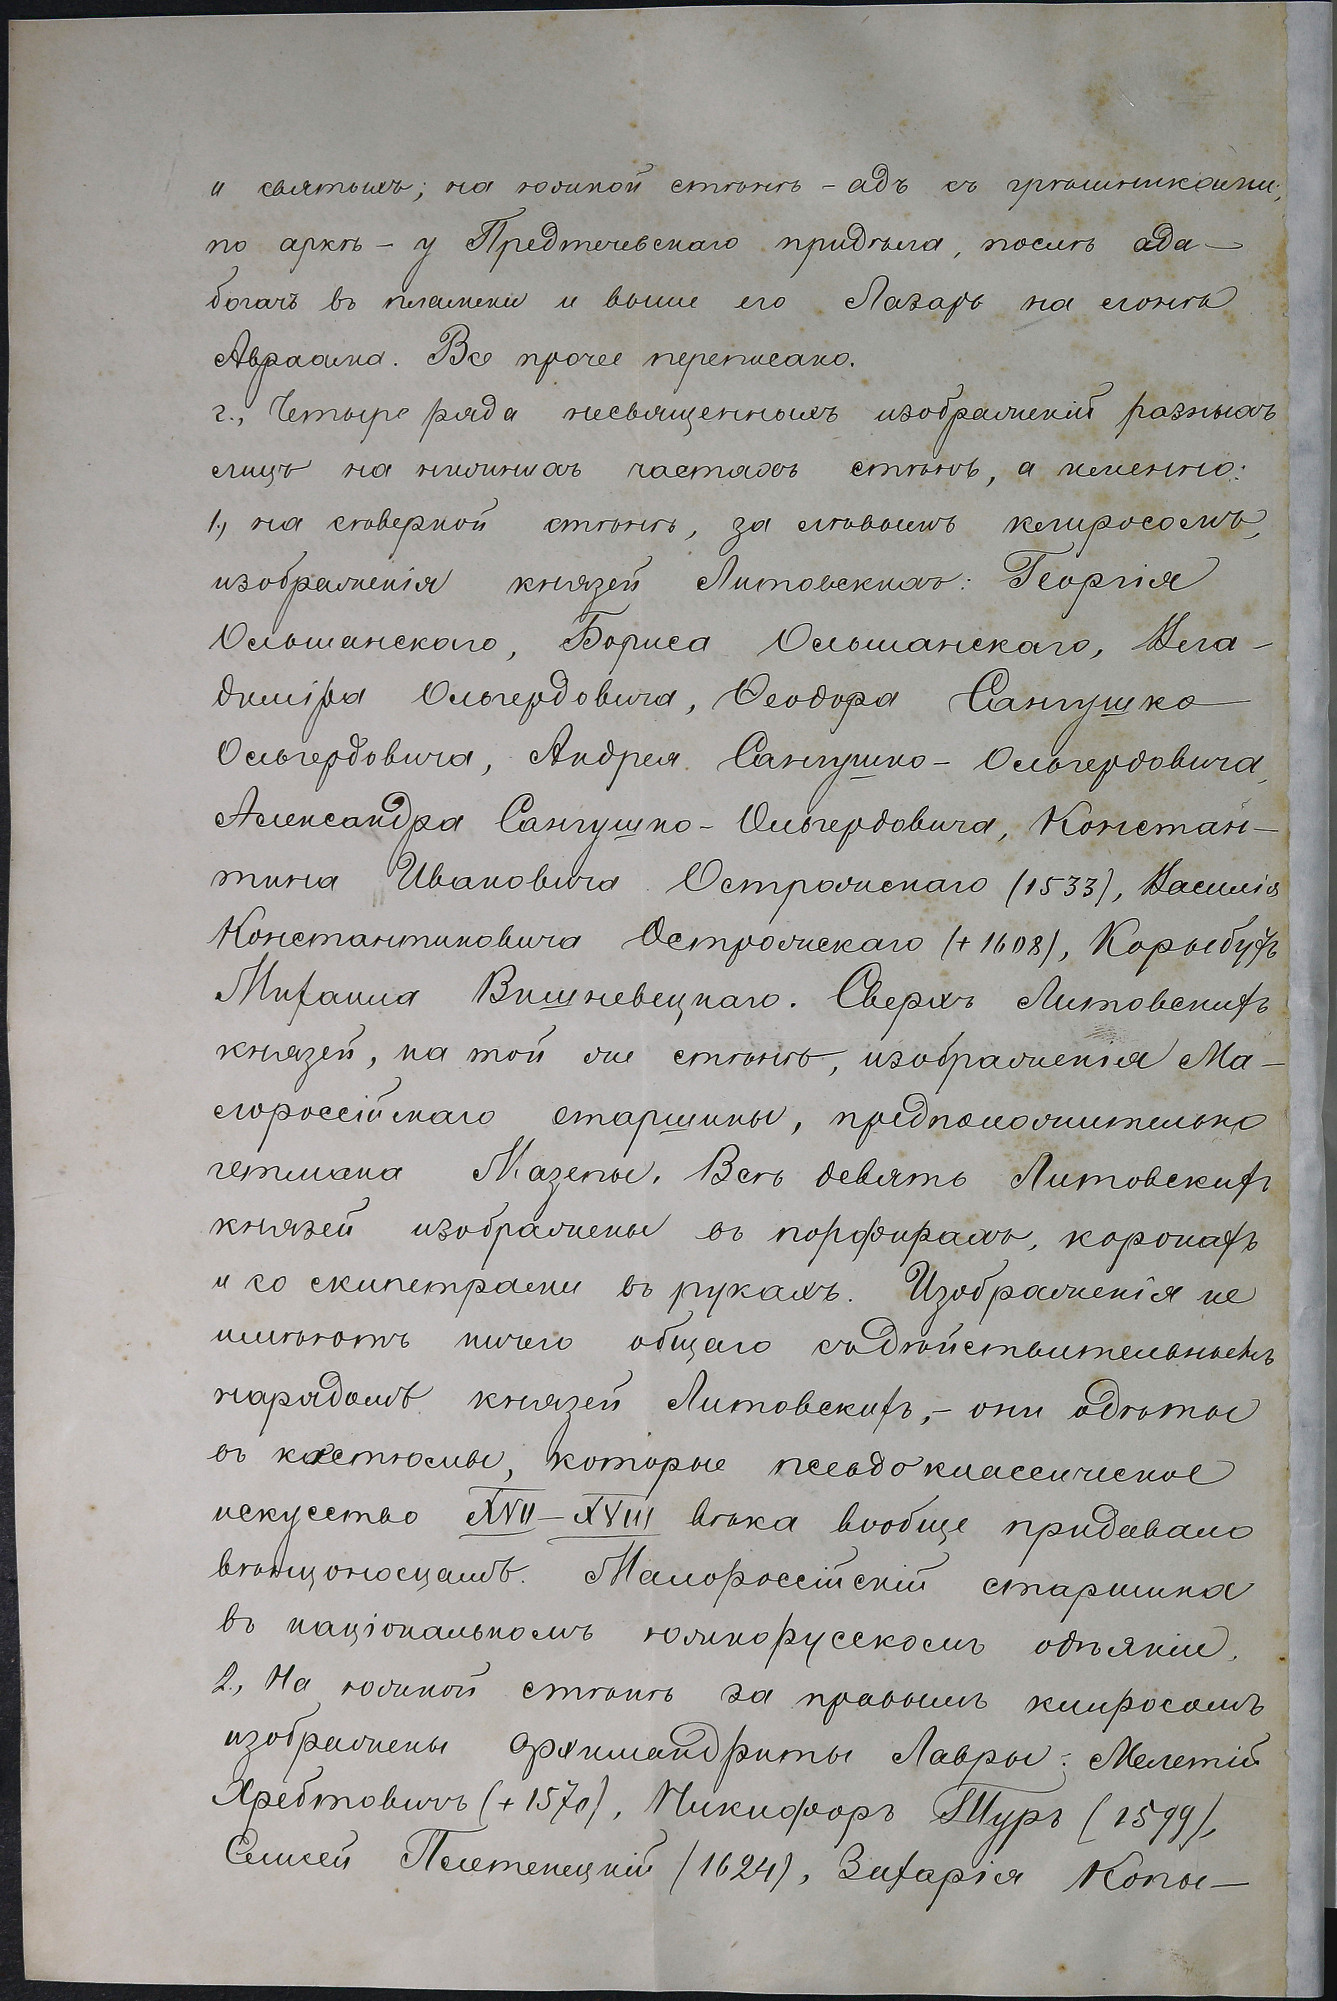 и святыхъ; на южной стѣнѣ – адъ съ грѣшниками;
по аркѣ – у Предтечевскаго придѣла, послѣ ада –
богачъ въ пламени и выше его Лазарь на лонѣ
Авраама. Все прочее переписано.
г., Четыре ряда несвященныхъ изображеній разныхъ
лицъ на нижнихъ частяхъ стѣнъ, а именно:
1., на сѣверной стѣнѣ, за лѣвымъ клиросомъ,
изображенія князей Литовскихъ: Георгія
Ольшанскаго, Бориса Ольшанскаго, Вла-
диміра Ольгердовича, Ѳеодора Сангушко
Ольгердовича, Андрея Сангушко – Ольгердовича,
Александра Сангушко – Ольгердовича, Констан-
тина Ивановича Острожскаго (1533), Василія
Константиновича Острожскаго (+ 1608), Корыбутъ
Михаила Вишневецкаго. Сверхъ Литовскихъ
князей, на той же стѣнѣ, изображенія Ма-
лороссійскаго старшины, предположительно
гетмана Мазепы. Всѣ девять Литовскихъ
князей изображены въ порфирахъ, коронахъ
и со скипетрами въ рукахъ. Изображенія не
имѣютъ ничего общаго съ дѣйствительнымъ
нарядомъ князей Литовскихъ, – они одѣты
въ костюмы, которые псевдоклассическое
искусство XVII – XVIII вѣка вообще придавало
вѣнценосцамъ. Малороссійскій старшина
въ національномъ южнорусскомъ одѣяніи.
2., На южной стѣнѣ за правымъ клиросомъ
изображены архимандриты Лавры: Мелетій
Хребтовичъ (+ 1570), Никифоръ Туръ (1599),
Елисей Плетенецкій (1624), Захарія Копы-